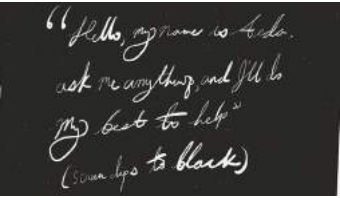 "Hello, my name is
ask me anything, and I'll do
my best to help"
(screen dips to black)